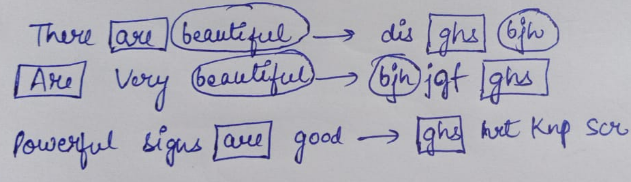 There are beautiful → dis ghs bjh
Are Very beautiful → bjh jgf ghs
Powerful signs are good → ghs hrt Knp Scr